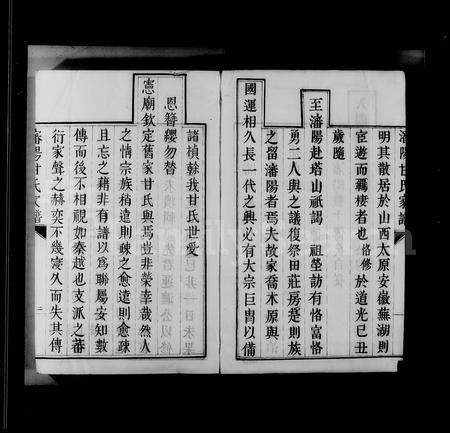 瀋陽甘氏家譜
明其散居於山西太原安徽蕪湖則
宦遊而羈棲者也恪修於道光己丑
歲隨
至瀋陽赴塔山祇謁祖塋訪有恪富恪
勇二人與之議復祭田莊房塋則族
之留瀋陽者焉夫故家喬木原與
國運相久長一代之興必有大宗巨冑以備
諸楨榦我甘氏世愛
恩簪纓勿替
憲廟欽定舊家甘氏與焉豈非榮幸哉然人
之情宗族稍遠則疎之愈遠則愈疎
且忘之藉非有譜以為聯屬安知數
傳而後不相視如秦越也支派之蕃
衍家聲之赫奕不幾寖久而失其傳
瀋陽甘氏家譜
二